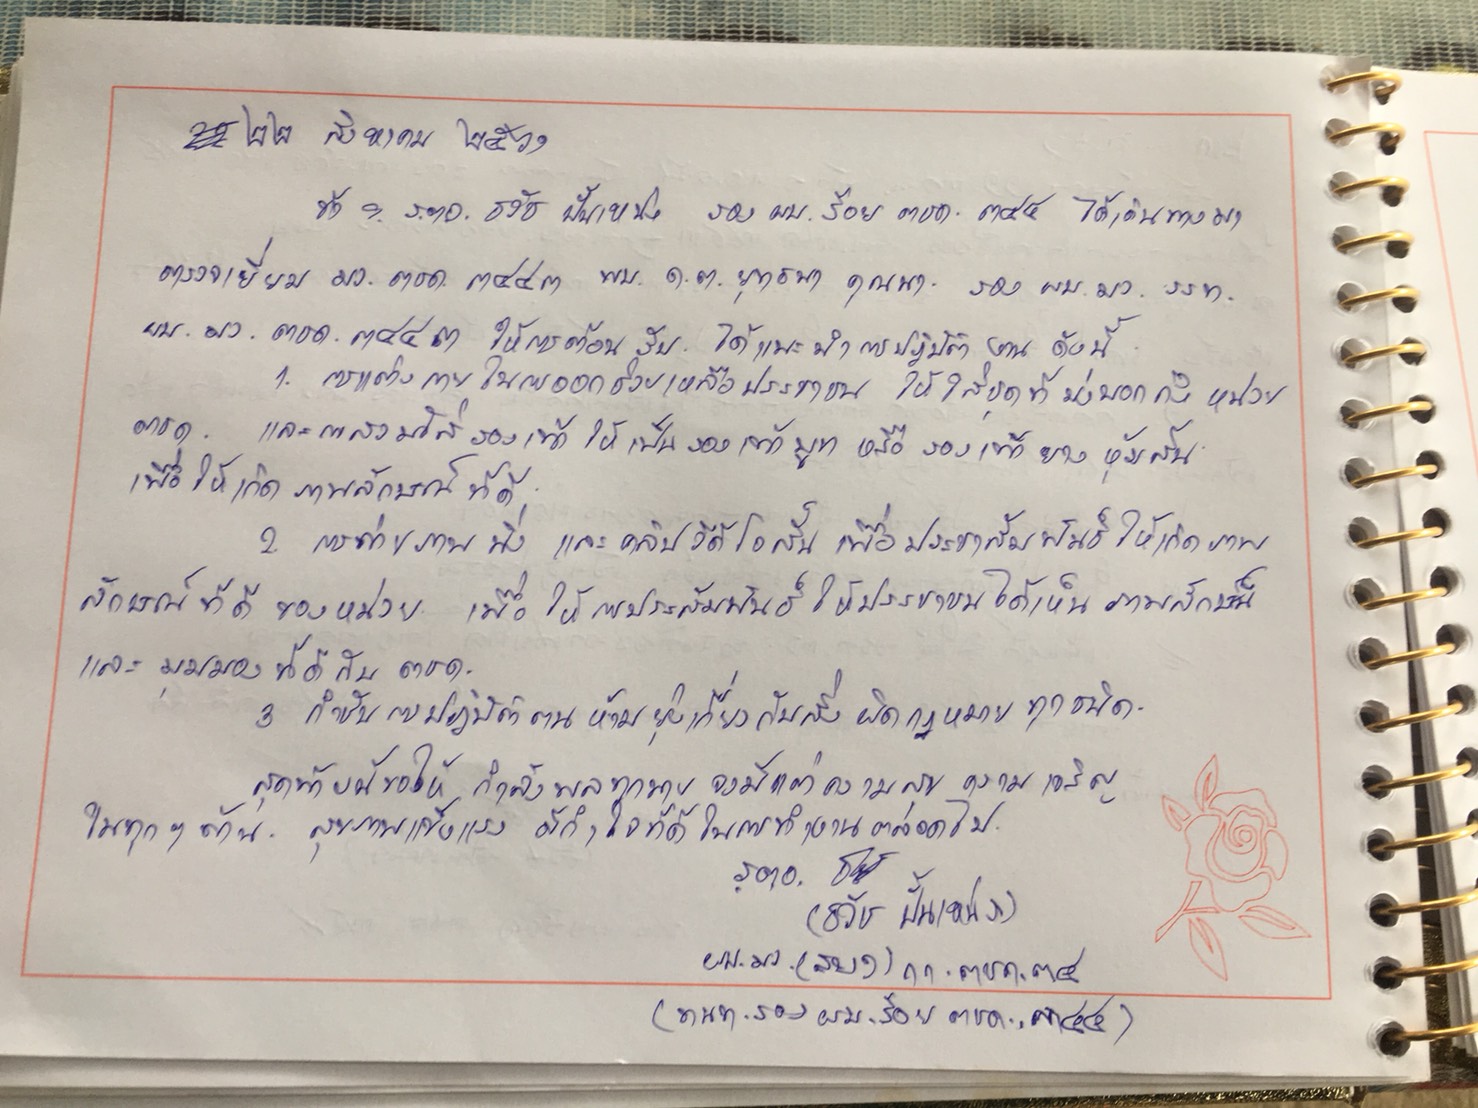 ๒๒ สิงหาคม ๒๕๖๑
ข้า ฯ ร.ต.อ. ธวัช ปั้นเหน่ง รอง ผบ.ร้อย ตชด. ๓๔๔ ได้เดินทางมา
ตรวจเยี่ยม มว. ตชด. ๓๔๔๓ พบ. ด.ต. ยุทธนา คุณนา. รอง ผบ.มว. รรท.
ผบ. มว. ตชด. ๓๔๔๓ ให้การต้อนรับ. ได้แนะนำ การปฏิบัติงาน ดังนี้
1. การแต่งกาย ในการออกช่วยเหลือประชาชน ให้ใส่ชุดที่ บ่งบอกถึง หน่วย
ตชด. และการสวมใส่รองเท้า ให้เป็นรองเท้าบูท หรือ รองเท้า ยาง หุ้มส้น
เพื่อให้เกิด ภาพลักษณ์ ที่ดี.
2. การถ่ายภาพ นิ่ง และ คลิปวีดีโอสั้น เพื่อประชาสัมพันธ์ ให้เกิดภาพ
ลักษณ์ ที่ดี ของหน่วย. เพื่อ ให้การประสัมพันธ์ ให้ประชาชนได้เห็น ภาพลักษณ์
และ มุมมอง ที่ดี กับ ตชด.
3 กำชับ การปฏิบัติตน ห้ามยุ่งเกี่ยวกับสิ่ง ผิดกฎหมาย ทุกชนิด.
สุดท้ายนี้ขอให้ กำลังพลทุกนาย จงมีแต่ความสุข ความเจริญ
ในทุกๆ ด้าน. สุขภาพแข็งแรง มีกำใจที่ดี ในการทำงานตลอดไป.
ร.ต.อ.
(ธวัช ปั้นเหน่ง)
ผบ.มว.(สบ๑) กก.ตชด.๓๔
(ทนท.รอง ผบ.ร้อย ตชด.๓๔๔)